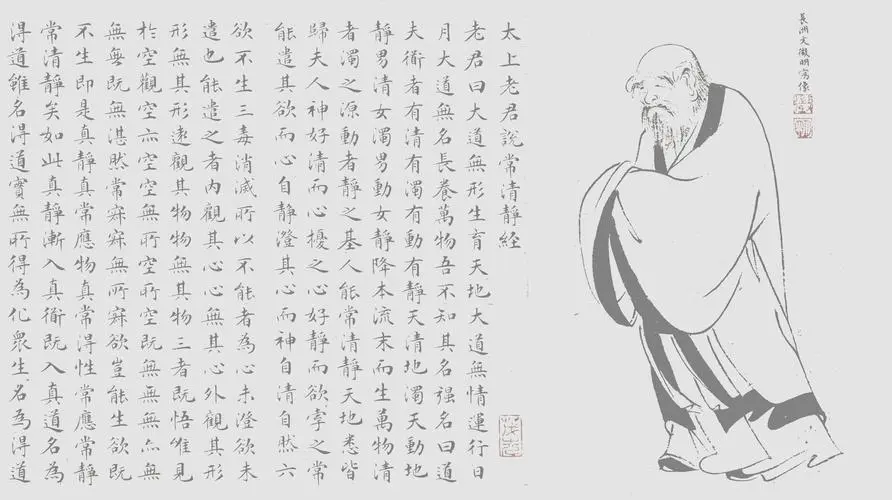 長洲文徵明寫像
太上老君說常清靜經
老君曰大道無形生育天地大道無情運行日
月大道無名長養萬物吾不知其名强名曰道
夫衜者有清有濁有動有靜天清地濁天動地
靜男清女濁男動女靜降本流末而生萬物清
者濁之源動者靜之基人能常清靜天地悉皆
歸夫人神好清而心擾之心好靜而欲牽之常
能遣其欲而心自靜澄其心而神自清自然六
欲不生三毒消滅所以不能者為心未澄欲未
遣也能遣之者內觀其心心無其心外觀其形
形無其形遠觀其物物無其物三者既悟唯見
於空觀空亦空空無所空所空既無無無亦無
無無既無湛然常寂寂無所寂欲豈能生欲既
不生即是真靜真常應物真常得性常應常靜
常清靜矣如此真靜漸入真衜既入真道名為
得道雖名得道實無所得為化眾生名為得道